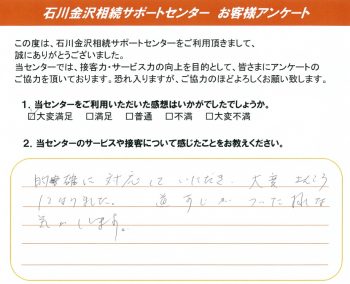 石川金沢相続サポートセンター お客様アンケート
この度は、石川金沢相続サポートセンターをご利用頂きまして、
誠にありがとうございました。
当センターでは、接客力・サービス力の向上を目的として、皆さまにアンケートの
ご協力を頂いております。恐れ入りますが、ご協力のほどよろしくお願い致します。
1. 当センターをご利用いただいた感想はいかがでしたでしょうか。
☑大変満足 □満足 □普通 □不満 □大変不満
2. 当センターのサービスや接客について感じたことをお教えください。
的確に対応していただき、大変
になりました。 道すじがついた様な
気がします。